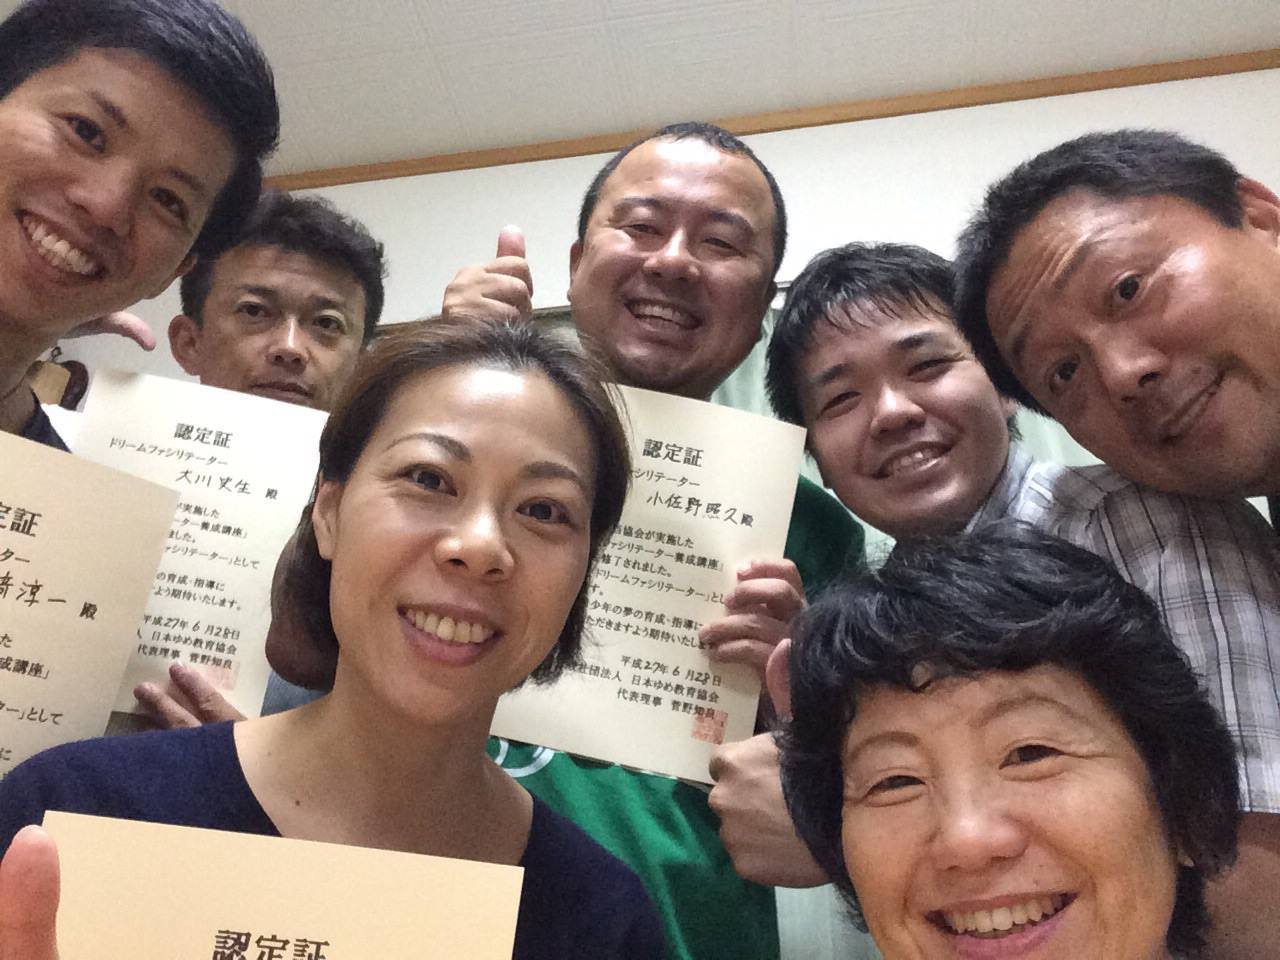 定証
ーター
淳一 殿
た
成成講座」
ター」として
に
認定証
ドリームファシリテーター
大川丈生 殿
が実施した
ーター養成講座」
ました。
シリテーター」として
の育成・指導に
よう期待いたします。
平成27年6月28日
人 日本ゆめ教育協会
代表理事 菅野知良
認定証
シリテーター
小佐野照久殿
当協会が実施した
ファシリテーター養成講座」
修了されました。
ドリームファシリテーター」とし
す。
少年の夢の育成・指導に
ただきますよう期待いたしま
平成27年6月28日
社団法人 日本ゆめ教育協会
代表理事 菅野知良
認定証